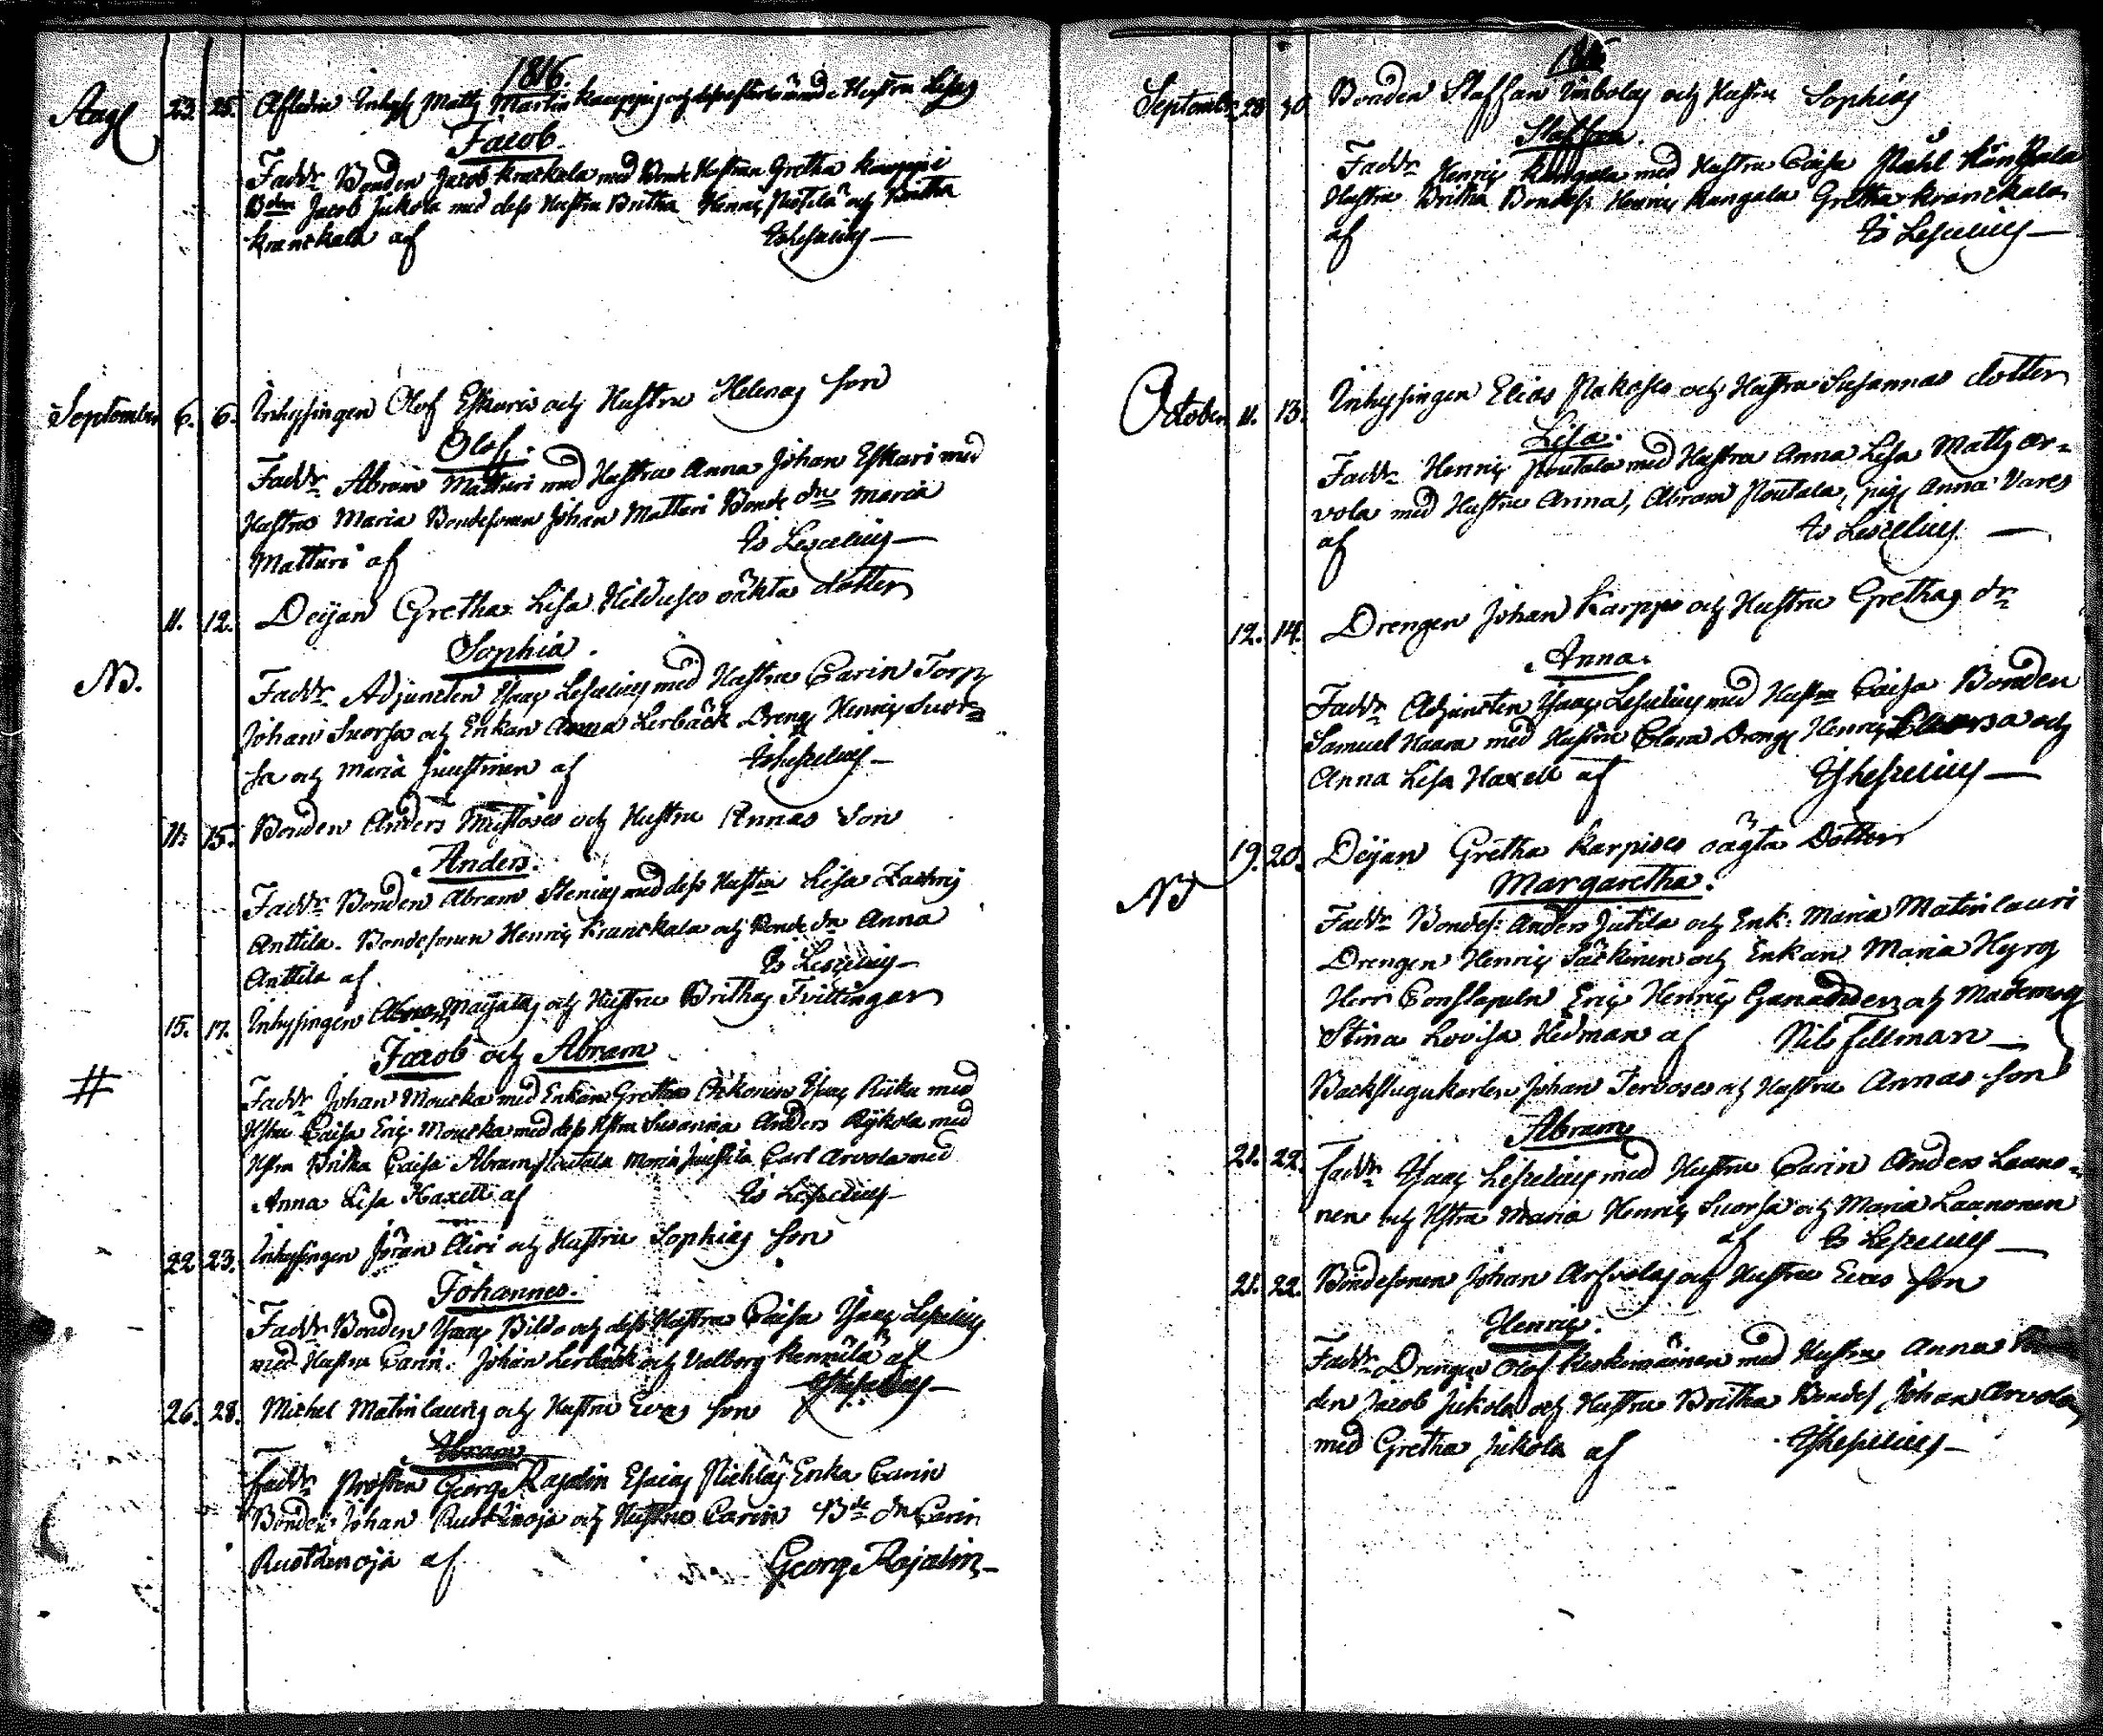 1816.
Augs 23. 25. Afledne Inhys Matts Martin kauppis och dess efterlämnade Hustru Lisas
Jacob.
Faddr Bonden Jacob Kraekala med Bonde Hustrun Gretha kauppi
Bden Jacob Jukola med dess Hustru Britha Henric och Britha
kranckala af
September 6. 6. Inhysingen Olof Eskaris och Hustru Helenas son
Olof.
Faddr Abram Matturi med Hustru Anna Johan Eskari med
Hustru Maria Bondesonen Johan Matturi Bonde dn Maria
Matturi af Is Lescelius
11. 12. Deijan Gretha Lisa oäkta dotter
Sophia.
NB. Faddr Adjuncten Isaac Lescelius med Hustru Carin Torp
Johan Suorsa och Enkan Anna Lerbäck Dreng Henric Suor=
sa och Maria Juustinen af Is Lescelius
15. Bonden Anders och Hustru Annas Son
Anders.
Faddr Bonden Abram Stenius med dess Hustru Lisa Zachris
Anttila. Bondesonen Henric Kranckala och Bonde dn Anna
Anttila af Is Lescelius
15. 17. Inhysingen Abram och Hustru Brithas Tvillingar
Jacob och Abram
# Faddr Johan Mourka med Enkan Gretha Isaac Riika med
Hstru Caisa Eric Mourka med dess Hstru Susanna Anders Rykola med
Hstru Britha Caisa Abram Maria Carl Arvola med
Anna Lisa Haxell af Is Lescelius
22 23. Inhysingen Jöran Airi och Hustru Sophias son
Johannes.
Faddr Bonden Isaac Bildo och dess Hustru Caisa Isaac Lescelius
med Hustru Carin. Johan Lerbäck och Valborg Kennilä af
Is Lescelius
26. 28. Michel Matinlauris och Hustru Evas son
Abram
Faddr Prosten Georg Rajalin Esaias Enka Carin
Bonden Johan Ruotzinoja och Hustru Carin Bde dn Carin
Ruotzinoja af Georg Rajalin
September 28 30. Bonden Staffan och Hustru Sophias
Staffan.
Faddr Henric Kangala med Hustru Caisa Påhl
Hustru Britha Bondes: Henric Kangala Gretha kranckala
af Is Lescelius
October 11. 13. Inhysingen Elias och Hustru Susannas dotter
Lisa.
Faddr Henric med Hustru Anna Lisa Matts Ar=
vola med Hustru Anna, Abram pig Anna Vares
af Is Lescelius
12. 14. Drengen Johan Karppo och Hustru Grethas dr
Anna.
Faddr Adjuncten Isaac Lescelius med Hustru Caisa Bonden
Samuel Haara med Hustru Clara Dreng Henric och
Anna Lisa Haxell af Is Lescelius
19. 20. Deijan Gretha Karpises oägta Dotter
Margaretha.
NB Faddr Bondes: Anders Jutila och Enk: Maria Matinlauri
Drengen Henric Särkinen och Enkan Maria Hyry
Herr Constapeln Eric Henric Ganander och Mademois
Stina Lovisa Hedman af Nils Fellman
Backstugukarlen Johan Tervoses och Hustru Annas son
Abram
21. 22. Faddr Isaac Lescelius med Hustru Carin Anders Laano=
nen och Hstru Maria Henric Suorsa och Maria Laanonen
af Is Lescelius
21. 22. Bondesonen Johan Arfvolas och Hustru Evas son
Henric.
Faddr Drengen Olof Keskimäinen med Hustru Anna
den Jacob Jukola och Hustru Britha Bondes Johan Arvola
med Gretha Jukola af Is Lescelius